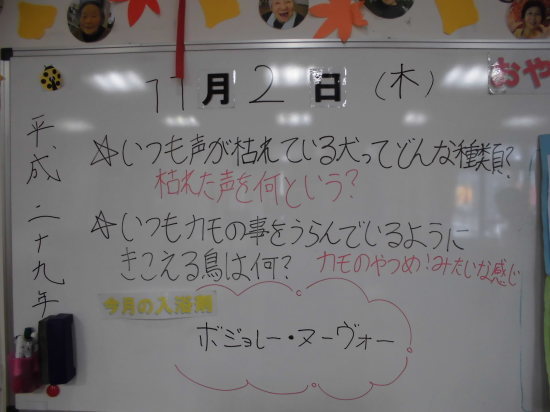 平成二十九年
11月2日(木)
おや
☆いつも声が枯れている犬ってどんな種類?
枯れた声を何という?
☆いつもカモの事をうらんでいるように
きこえる鳥は何? カモのやつめ!みたいな感じ
今月の入浴剤
ボジョレー・ヌーヴォー